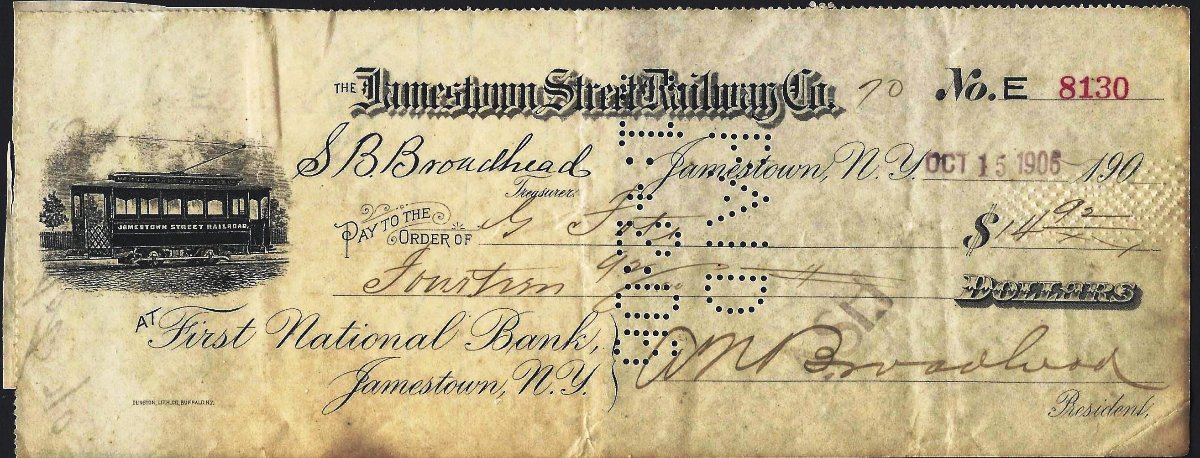 THE Jamestown Street Railway Co. 70 No. E 8130
S B Broadhead
Treasurer.
Jamestown, N. Y. OCT 15 1906 190
JAMESTOWN STREET RAILROAD.
PAY TO THE ORDER OF G $14 92
Fourteen 92 DOLLARS
AT First National Bank,
Jamestown, N.Y.
A N Broadhead
President.
PAID